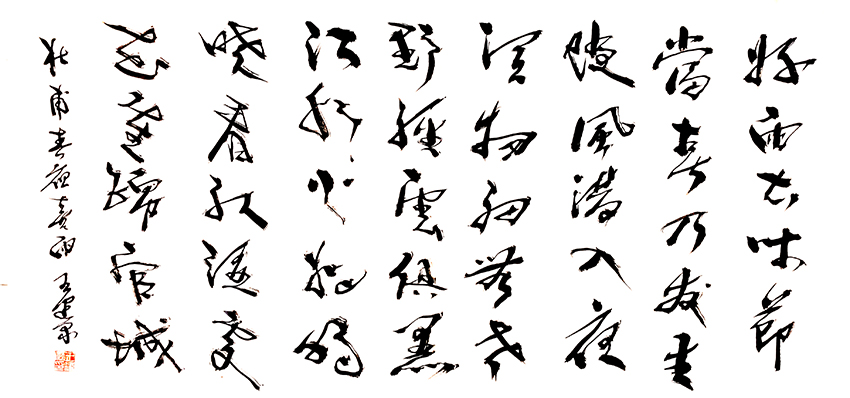 好雨知時節
當春乃發生
隨風潛入夜
潤物細無聲
野徑雲俱黑
江船火獨明
曉看紅濕處
花重錦官城
杜甫春夜喜雨